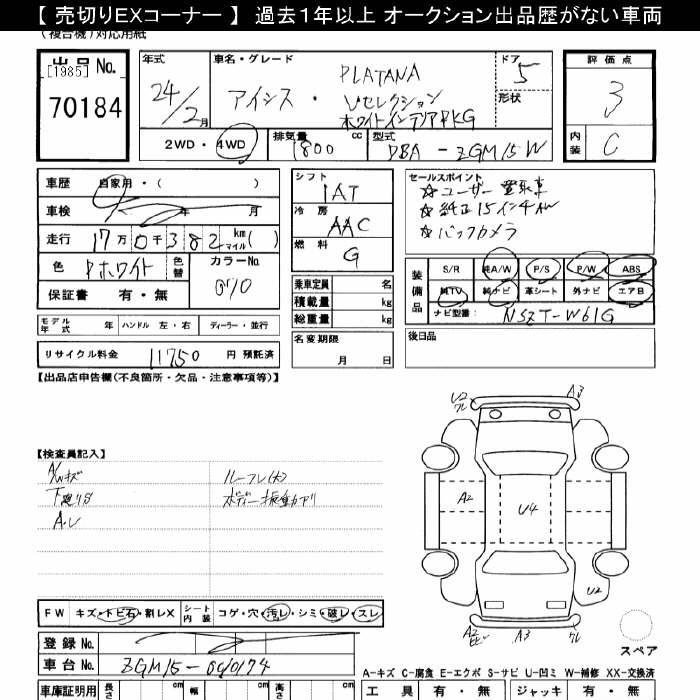 【 売切りEXコーナー 】 過去1年以上 オークション出品歴がない車両
(複合機)対応用紙
出品 No.
[1985]
70184
年式
24/2月
車名・グレード
PLATANA
アイシス・Vセレクション
ホワイトインテリアPKG
ドア
5
形状
2WD・4WD
排気量
1800 cc
型式
DBA - ZGM15W
評価点
3
内装
C
車歴 自家用・( )
車検 年 月
走行 17万0千382 km マイル( )
色 Pホワイト 色替
カラーNo.
070
保証書 有・無
シフト
1AT
冷房
AAC
燃料
G
乗車定員 名
積載量 kg
総重量 kg
セールスポイント
☆ユーザー買取車
☆純正15インチAW
☆バックカメラ
装備品
S/R 純A/W P/S P/W ABS
純TV 純ナビ 革シート 外ナビ エアB
ナビ型番: NSZT-W61G
モデル年式 年 ハンドル 左・右 ディーラー・並行
名変期限
月 日
後日品
リサイクル料金 11750 円 預託済
【出品店申告欄(不良箇所・欠品・注意事項等)】
【検査員記入】
A/Wキズ
下廻りサ
ルーフレ(大)
A2
U4
U2
A3
A3
U2
スペア
FW キズ・トビ石・割レX シート内装 コゲ・穴・汚レ・シミ・破レ・スレ
登録 No.
車台 No. ZGM15-0010174
A-キズ C-腐食 E-エクボ S-サビ U-凹ミ W-補修 XX-交換済
車庫証明用 長さ cm 幅 cm 高さ cm
工具 有・無 ジャッキ 有・無